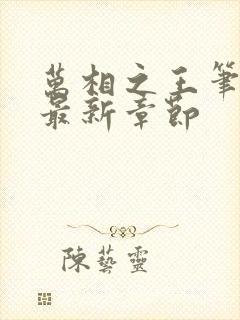 萬相之王筆
最新章節
陳藝靈